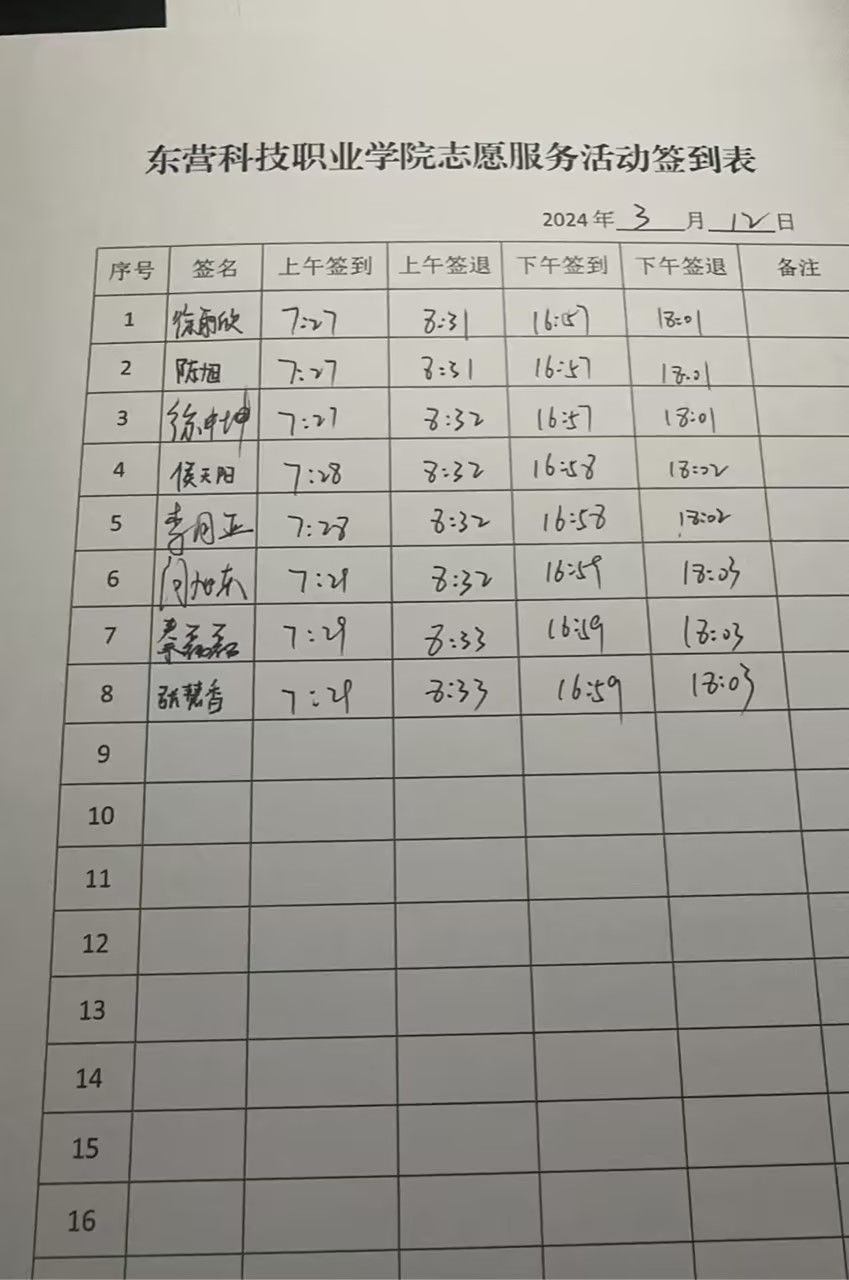 东营科技职业学院志愿服务活动签到表
2024年 3 月 12 日
序号 签名 上午签到 上午签退 下午签到 下午签退 备注
1 徐雨欣 7:27 8:31 16:57 18:01
2 陈旭 7:27 8:31 16:57 18:01
3 徐中坤 7:27 8:32 16:57 18:01
4 侯天阳 7:28 8:32 16:58 18:02
5 李月亚 7:28 8:32 16:58 18:02
6 7:29 8:32 16:59 18:03
7 秦磊磊 7:29 8:33 16:59 18:03
8 张慧香 7:29 8:33 16:59 18:03
9
10
11
12
13
14
15
16